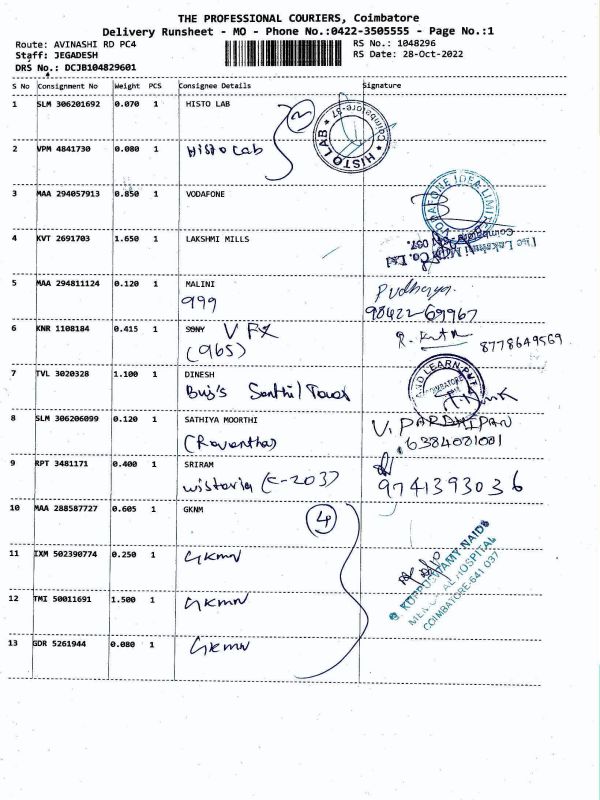 THE PROFESSIONAL COURIERS, Coimbatore
Delivery Runsheet - MO - Phone No.:0422-3505555 - Page No.:1
Route: AVINASHI RD PC4 RS No.: 1048296
Staff: JEGADESH RS Date: 28-Oct-2022
DRS No.: DCJB104829601
S No Consignment No Weight PCS Consignee Details Signature
1 SLM 306201692 0.070 1 HISTO LAB
2
HISTO LAB Coimbatore-37
2 VPM 4841730 0.080 1 Histo Lab
3 MAA 294057913 0.850 1 VODAFONE
VODAFONE IDEA LIMITED
Coimbatore
4 KVT 2691703 1.650 1 LAKSHMI MILLS
The Lakshmi Mills Co. Ltd
5 MAA 294811124 0.120 1 MALINI
999
98422-69967
6 KNR 1108184 0.415 1 SONY VFX
(965)
8778649569
7 TVL 3020328 1.100 1 DINESH
AND LEARN PVT
COIMBATORE
8 SLM 306206099 0.120 1 SATHIYA MOORTHI
V. PARDHIPAN
6384081001
9 RPT 3481171 0.400 1 SRIRAM
wistoria (C-203)
9741393036
10 MAA 288587727 0.605 1 GKNM
4
11 IXM 502390774 0.250 1 GKMN
12 TMI 50011691 1.500 1 GKMN
13 GDR 5261944 0.080 1 GKMN
G. KUPPUSWAMY NAIDU
MEMORIAL HOSPITAL
COIMBATORE-641 037